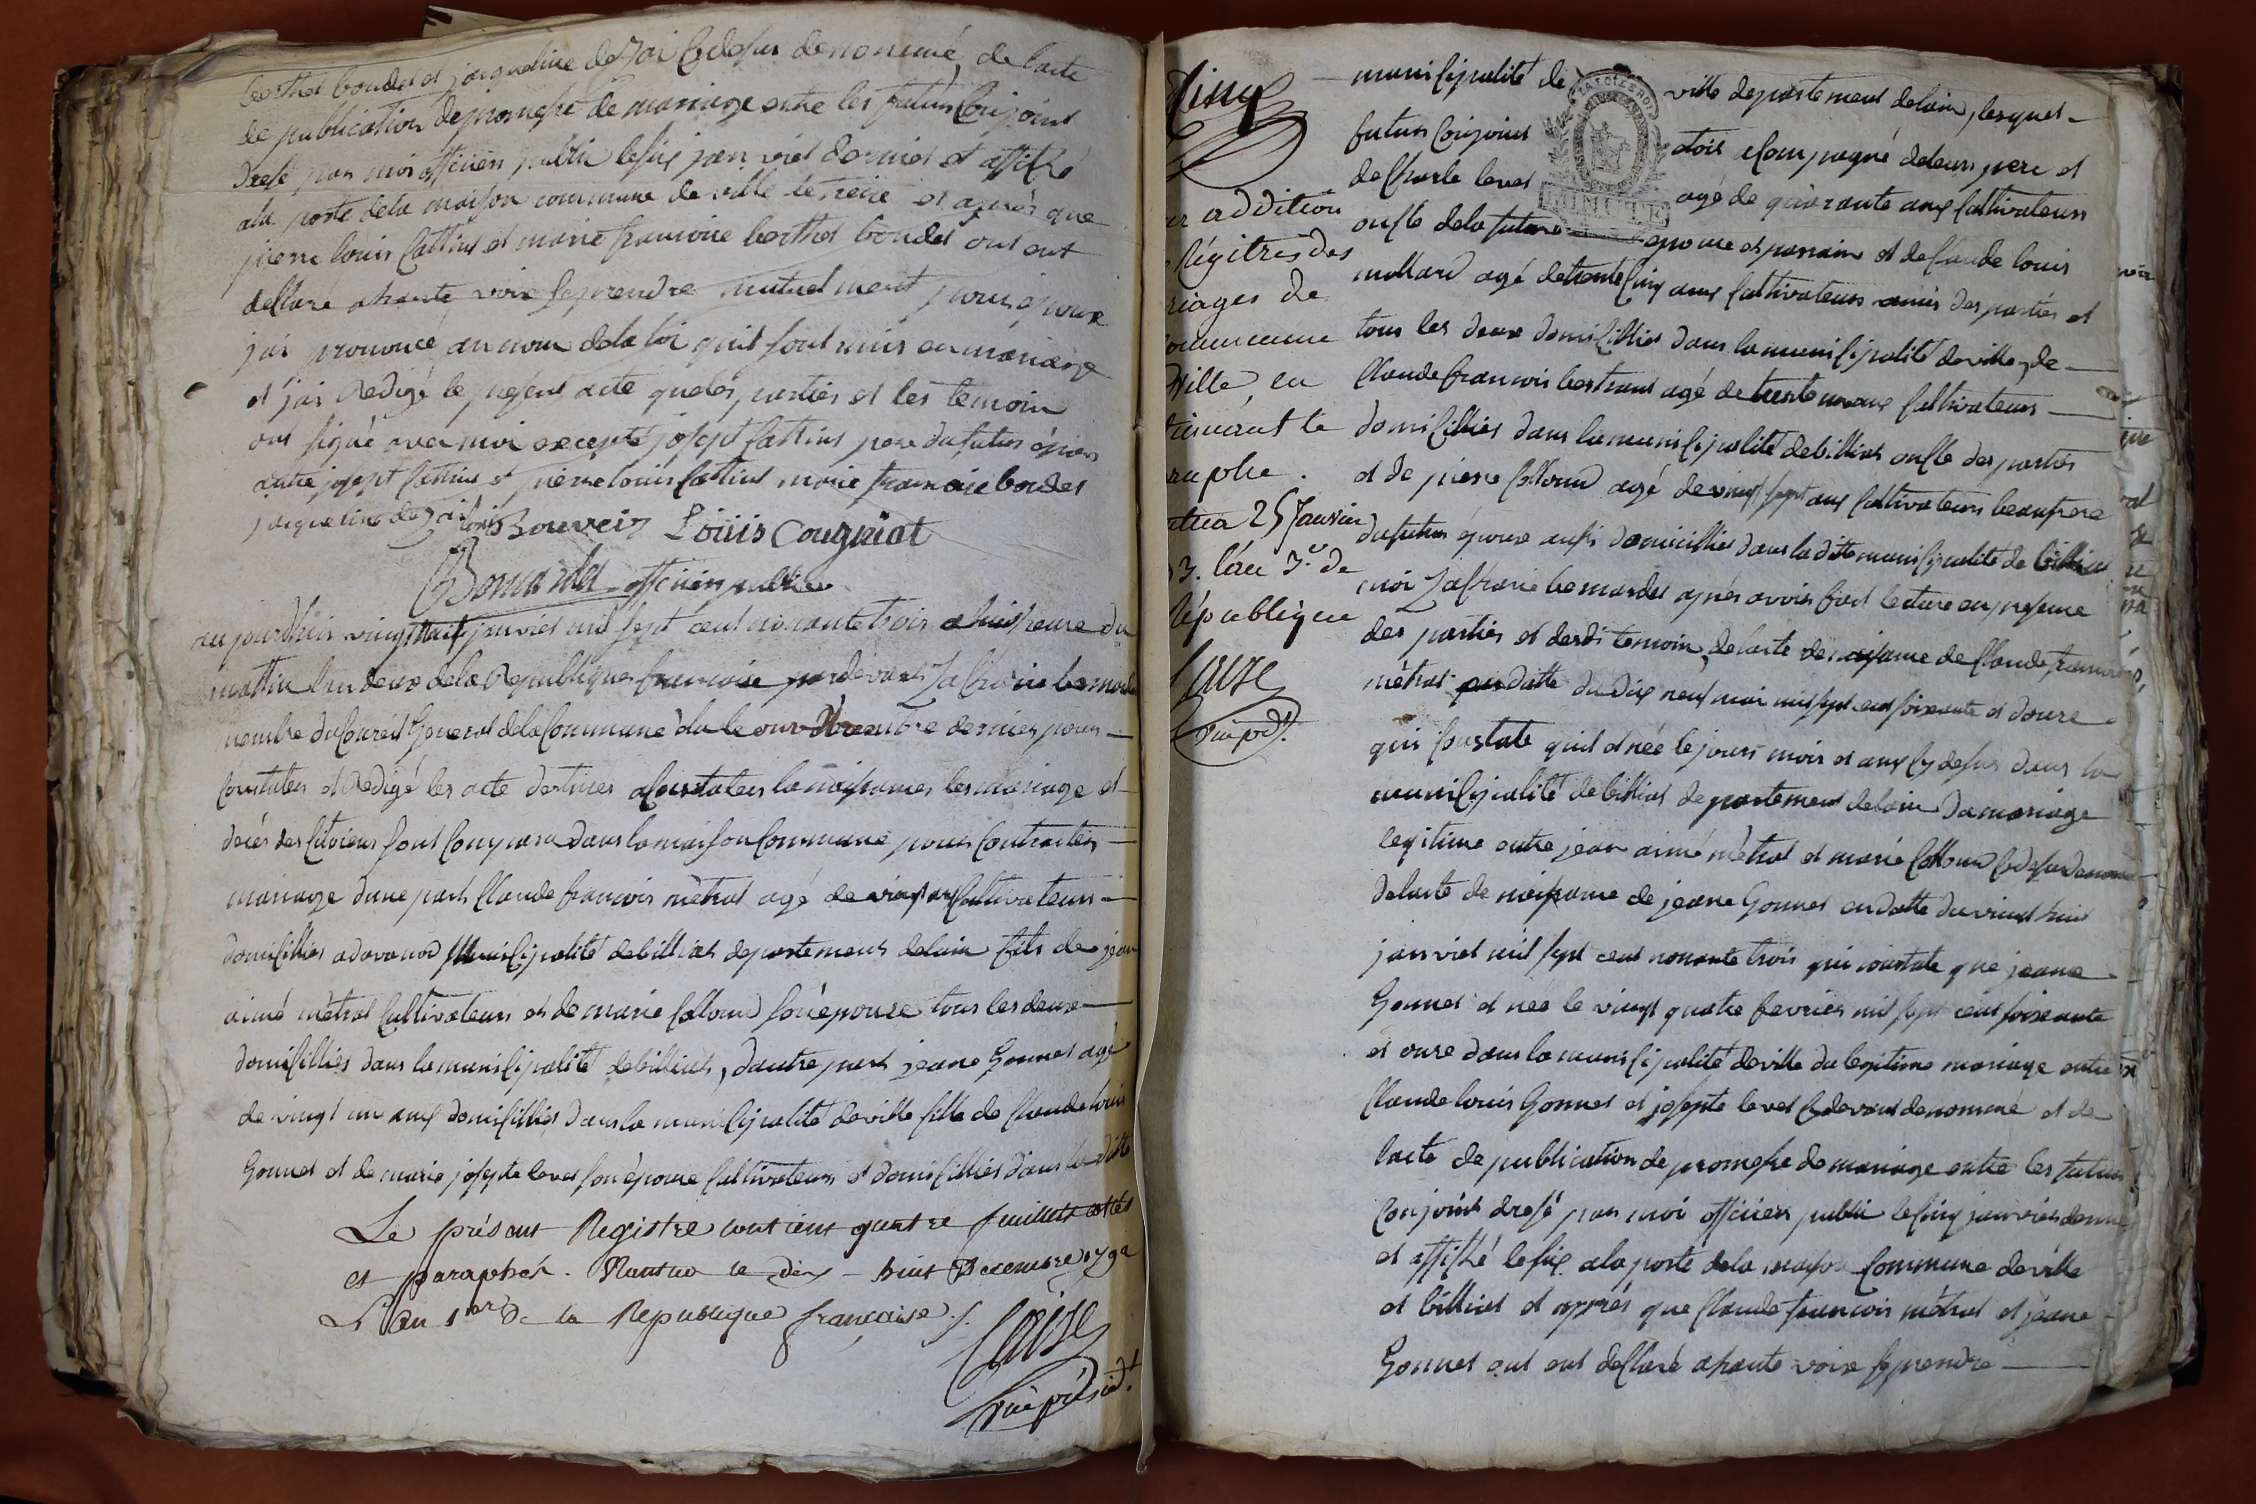 berthet boudet et jacqueline de Jai cydesus denommé, de lacte
de publication de promesse de mariage entre les futurs conjoint
dresé par moi officier public le six janvier dernier et affiché
ala porte dela maison commune de ville le treize et aprés que
pierre louis cattin et marie francoise berthet boudet ont eut
declare ahaute voix se prendre mutuelment pour epoux
jai prononcé au nom dela loi quil sont unis en mariage
et jai Redigé le présent acte que les parties et les temoin
ont signé avec moi excepté josept cattin pere du futur époux
josept cattin et pierre louis cattin marie francoise boudet
jacqueline de Jai Louis Bouveir Louis Cougniat
officier public
aujourdhuis vingt huit janvier mil sept cent nonante trois a huit heure du
mattin lan deux dela Republique francoise pardevant Zacharie
membre du Conseil General dela Commune élu le onze Décembre dernier pour
Constater et Redigé les acte destinés a Constater la naissances les mariage et
decés des citoiens sont Comparu dans la maison Commune pour Contracter
mariage dune part Claude francois métral agé de vingt ans Cultivateur
domicillié a davanod Municipalité de billiat departement delain fils de jean
aimé métral Cultivateur et de marie Colloud son épouse tous les deux
domicilliés dans la municipalité de billiat, dautre part jeane Gonnet agé
de vingt un ans domicillié dans la municipalité de ville fille de Claude louis
Gonnet et de marie josepte levet son épouse Cultivateur et domicilliés dans la ditte
Le présent Registre contient quatre feuillets cottés
et paraphés. Nantua le dix-huit Décembre 1792
L'an 1er de la Republique française.
vice présidt.
Cinq
addition
Régitres des
riages de
commune
Ville, en
le
25 Janvier
3. l'an 2e de
République
vice prdt.
municipalité de ville departement delain, lesquel
futurs Conjoint etoit acompagné de leurs pere et
de Charle levet agé de quarante ans Cultivateur
oncle dela future epouse et parrain et de Claude louis
mollard agé de trente Cinq ans Cultivateur amis des parties et
tous les deux domicilliés dans la municipalité de ville, de
Claude francois bertrand agé de trente un ans Cultivateur
domicilliés dans la municipalité de billiat oncle des parties
et de pierre Colloud agé de vingt sept ans Cultivateur beaufrere
du futur époux aussi domicilliés dans la ditte municipalité de billiat
moi Zacharie bomardet aprés avoir fait lecture en presence
des parties et desdi temoin, de lacte de naissance de Claude francois
métral en datte du dix neuf mai mil sept cent soixante et douze
qui Constate quil et née le jours mois et ans cy desus dans la
municipalité de billiat departement delain du mariage
legitime entre jean aimé métral et marie Colloud cy desus denommé
delacte de naissance de jeane Gonnet en datte du vingt huit
janvier mil sept cent nonante trois qui constate que jeane
Gonnet et née le vingt quatre fevrier mil sept cent soixante
et onze dans la municipalité de ville du legitime mariage entre
Claude louis Gonnet et josepte levet cy devant denommé et de
lacte de publication de promesse de mariage entre les futurs
Conjoint dresé par moi officier public le cinq janvier dernier
et affiché le six ala porte dela maison Commune de ville
et billiat et apprés que Claude francois métral et jeane
Gonnet ont eut declaré ahaute voix se prendre